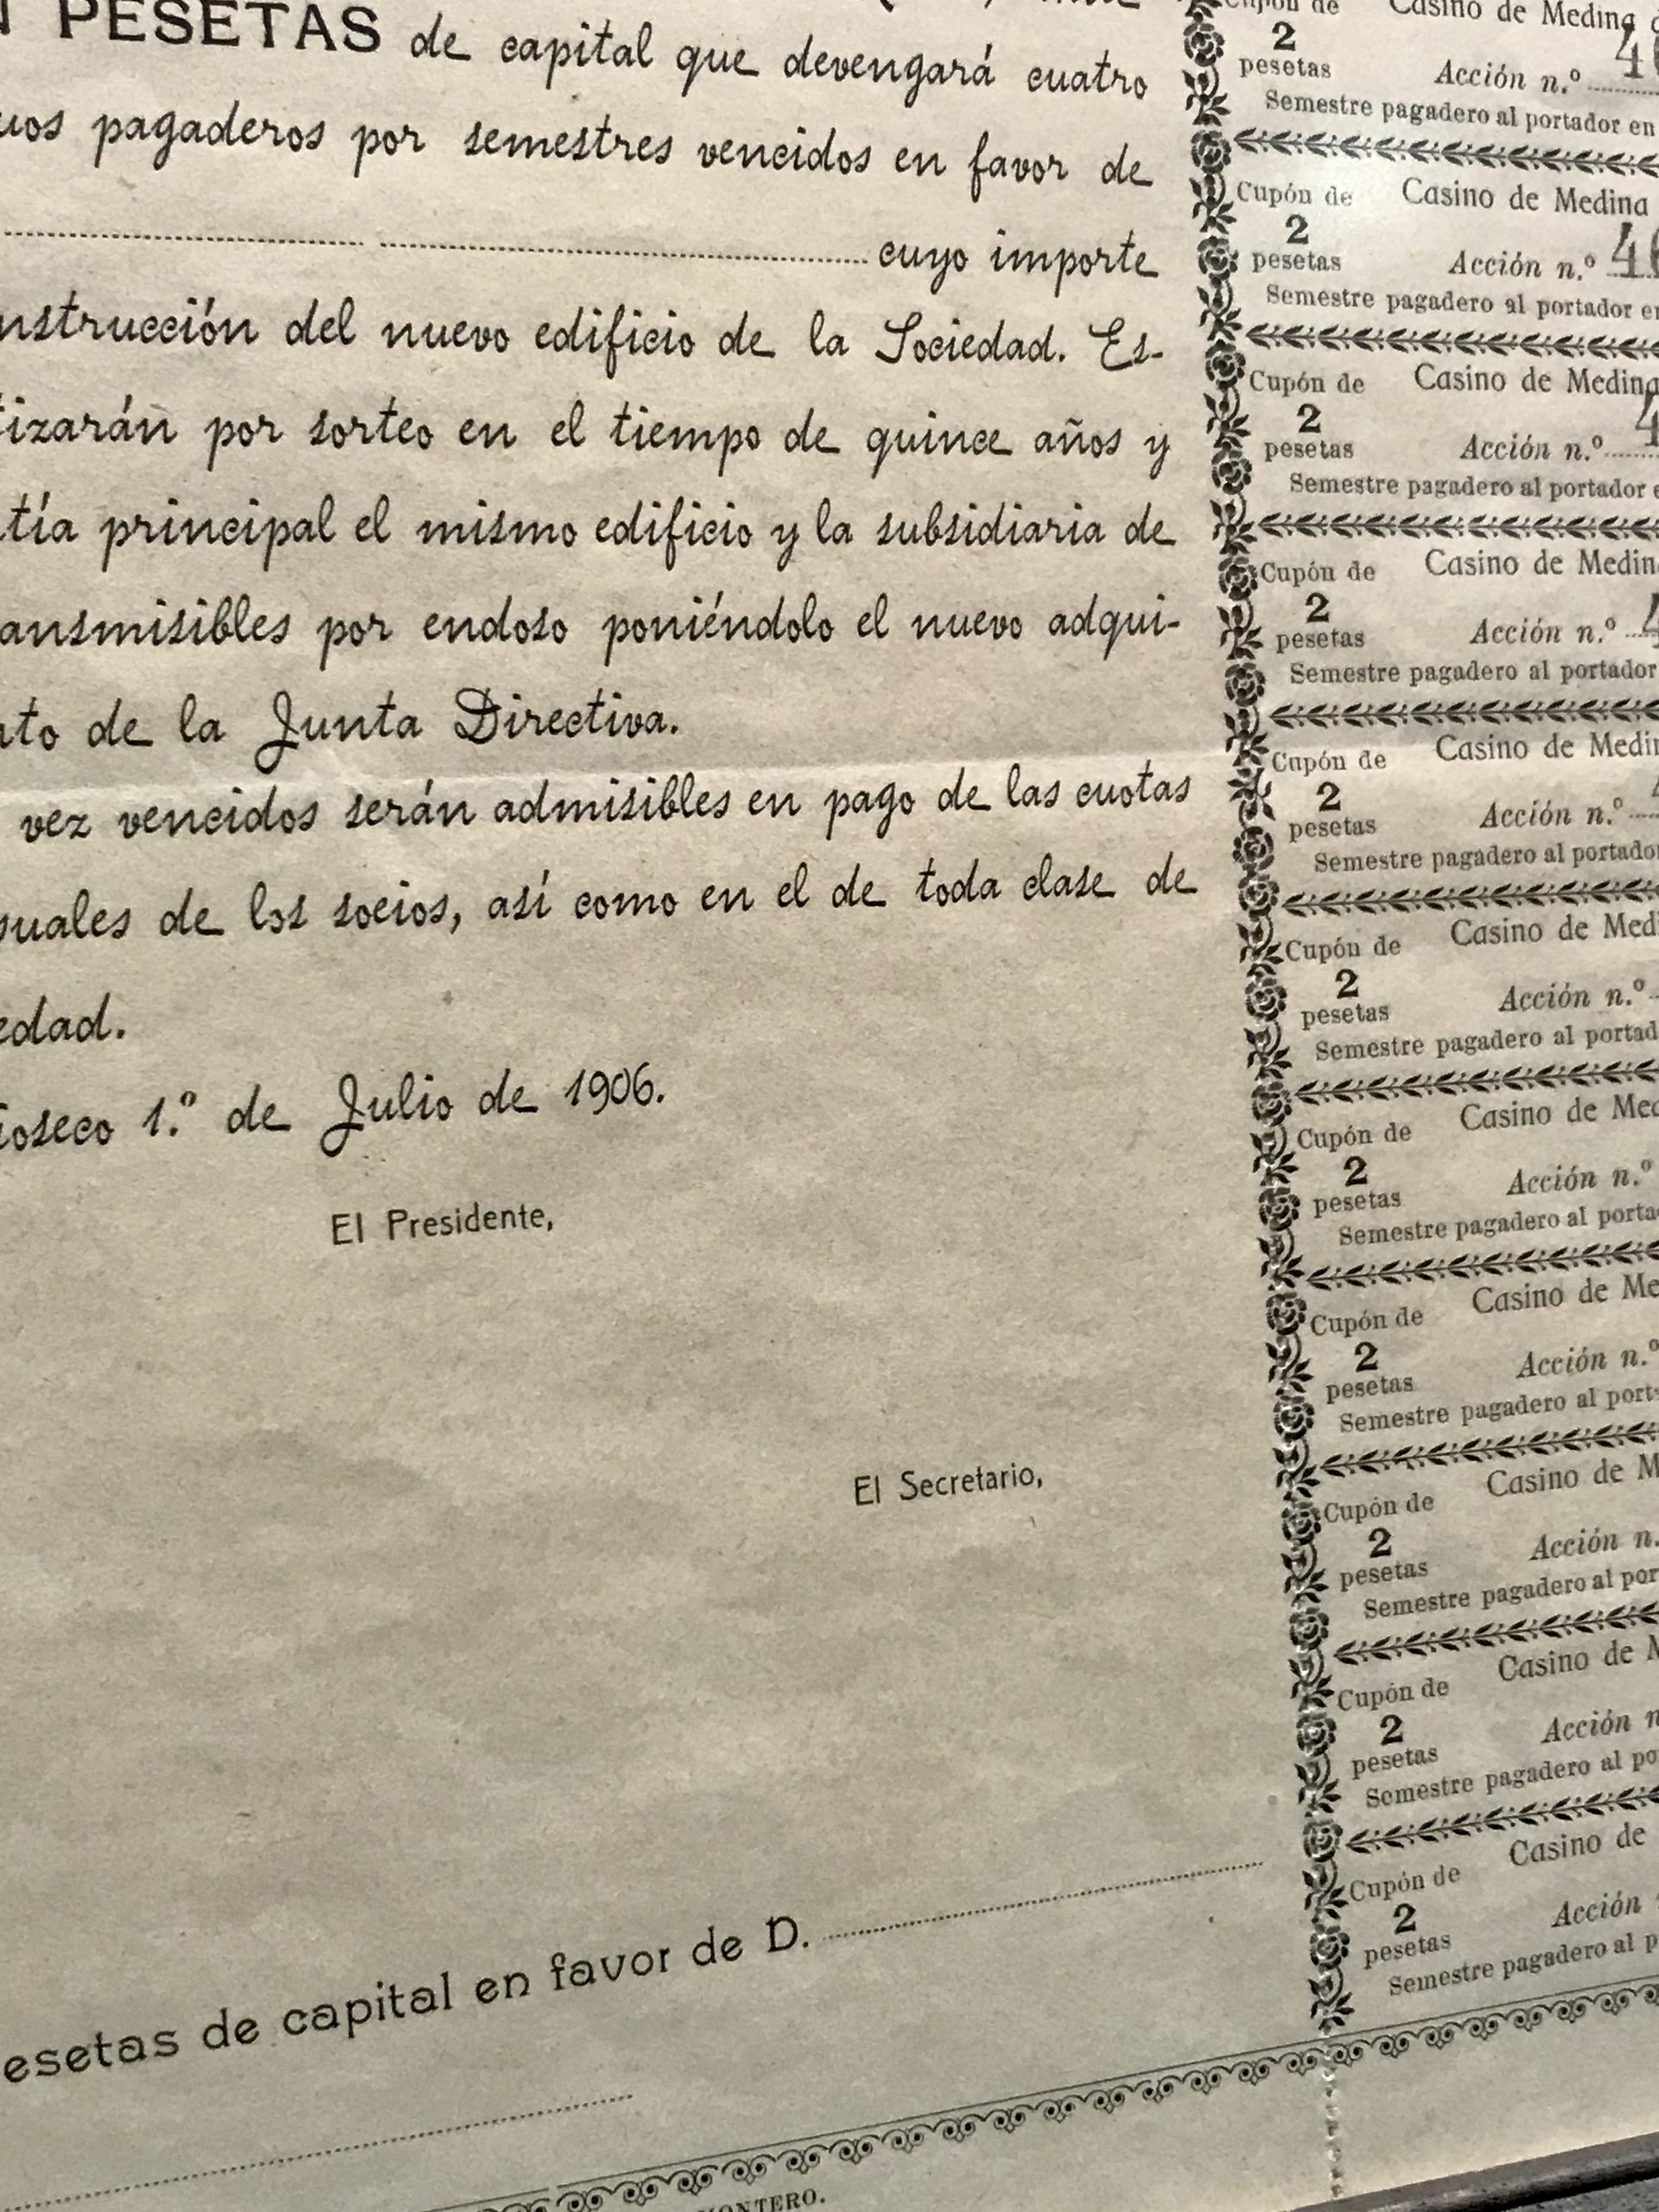 PESETAS de capital que devengará cuatro
pagaderos por semestres vencidos en favor de
cuyo importe
nstrucción del nuevo edificio de la Sociedad. Es-
tizarán por sorteo en el tiempo de quince años y
tía principal el mismo edificio y la subsidiaria de
ansmisibles por endoso poniéndolo el nuevo adqui-
nto de la Junta Directiva.
vez vencidos serán admisibles en pago de las cuotas
suales de los socios, así como en el de toda clase de
edad.
ioseco 1.º de Julio de 1906.
El Presidente,
El Secretario,
esetas de capital en favor de D.
ONTERO.
Cupón de Casino de Medina
2
pesetas Acción n.º 4
Semestre pagadero al portador en
Cupón de Casino de Medina
2
pesetas Acción n.º 4
Semestre pagadero al portador en
Cupón de Casino de Medina
2
pesetas Acción n.º 4
Semestre pagadero al portador e
Cupón de Casino de Medin
2
pesetas Acción n.º 4
Semestre pagadero al portador
Cupón de Casino de Medin
2
pesetas Acción n.º
Semestre pagadero al portador
Cupón de Casino de Medi
2
pesetas Acción n.º
Semestre pagadero al portad
Cupón de Casino de Med
2
pesetas Acción n.º
Semestre pagadero al porta
Cupón de Casino de Me
2
pesetas Acción n.º
Semestre pagadero al port
Cupón de Casino de M
2
pesetas Acción n.
Semestre pagadero al por
Cupón de Casino de M
2
pesetas Acción n
Semestre pagadero al po
Cupón de Casino de
2
pesetas Acción
Semestre pagadero al p